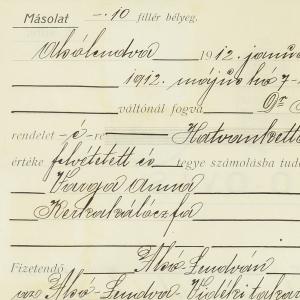 Másolat -.10 fillér bélyeg.
Alsólendva 1912. január
1912. május hó 7-
váltónál fogva Dr
rendelet -é- re Hatvankettő
értéke felvétetett és tegye számolásba tud
Varga Anna
Kerkakálóczfa
Fizetendő Alsó-Lendván
Alsó-Lendva Vidéki takar